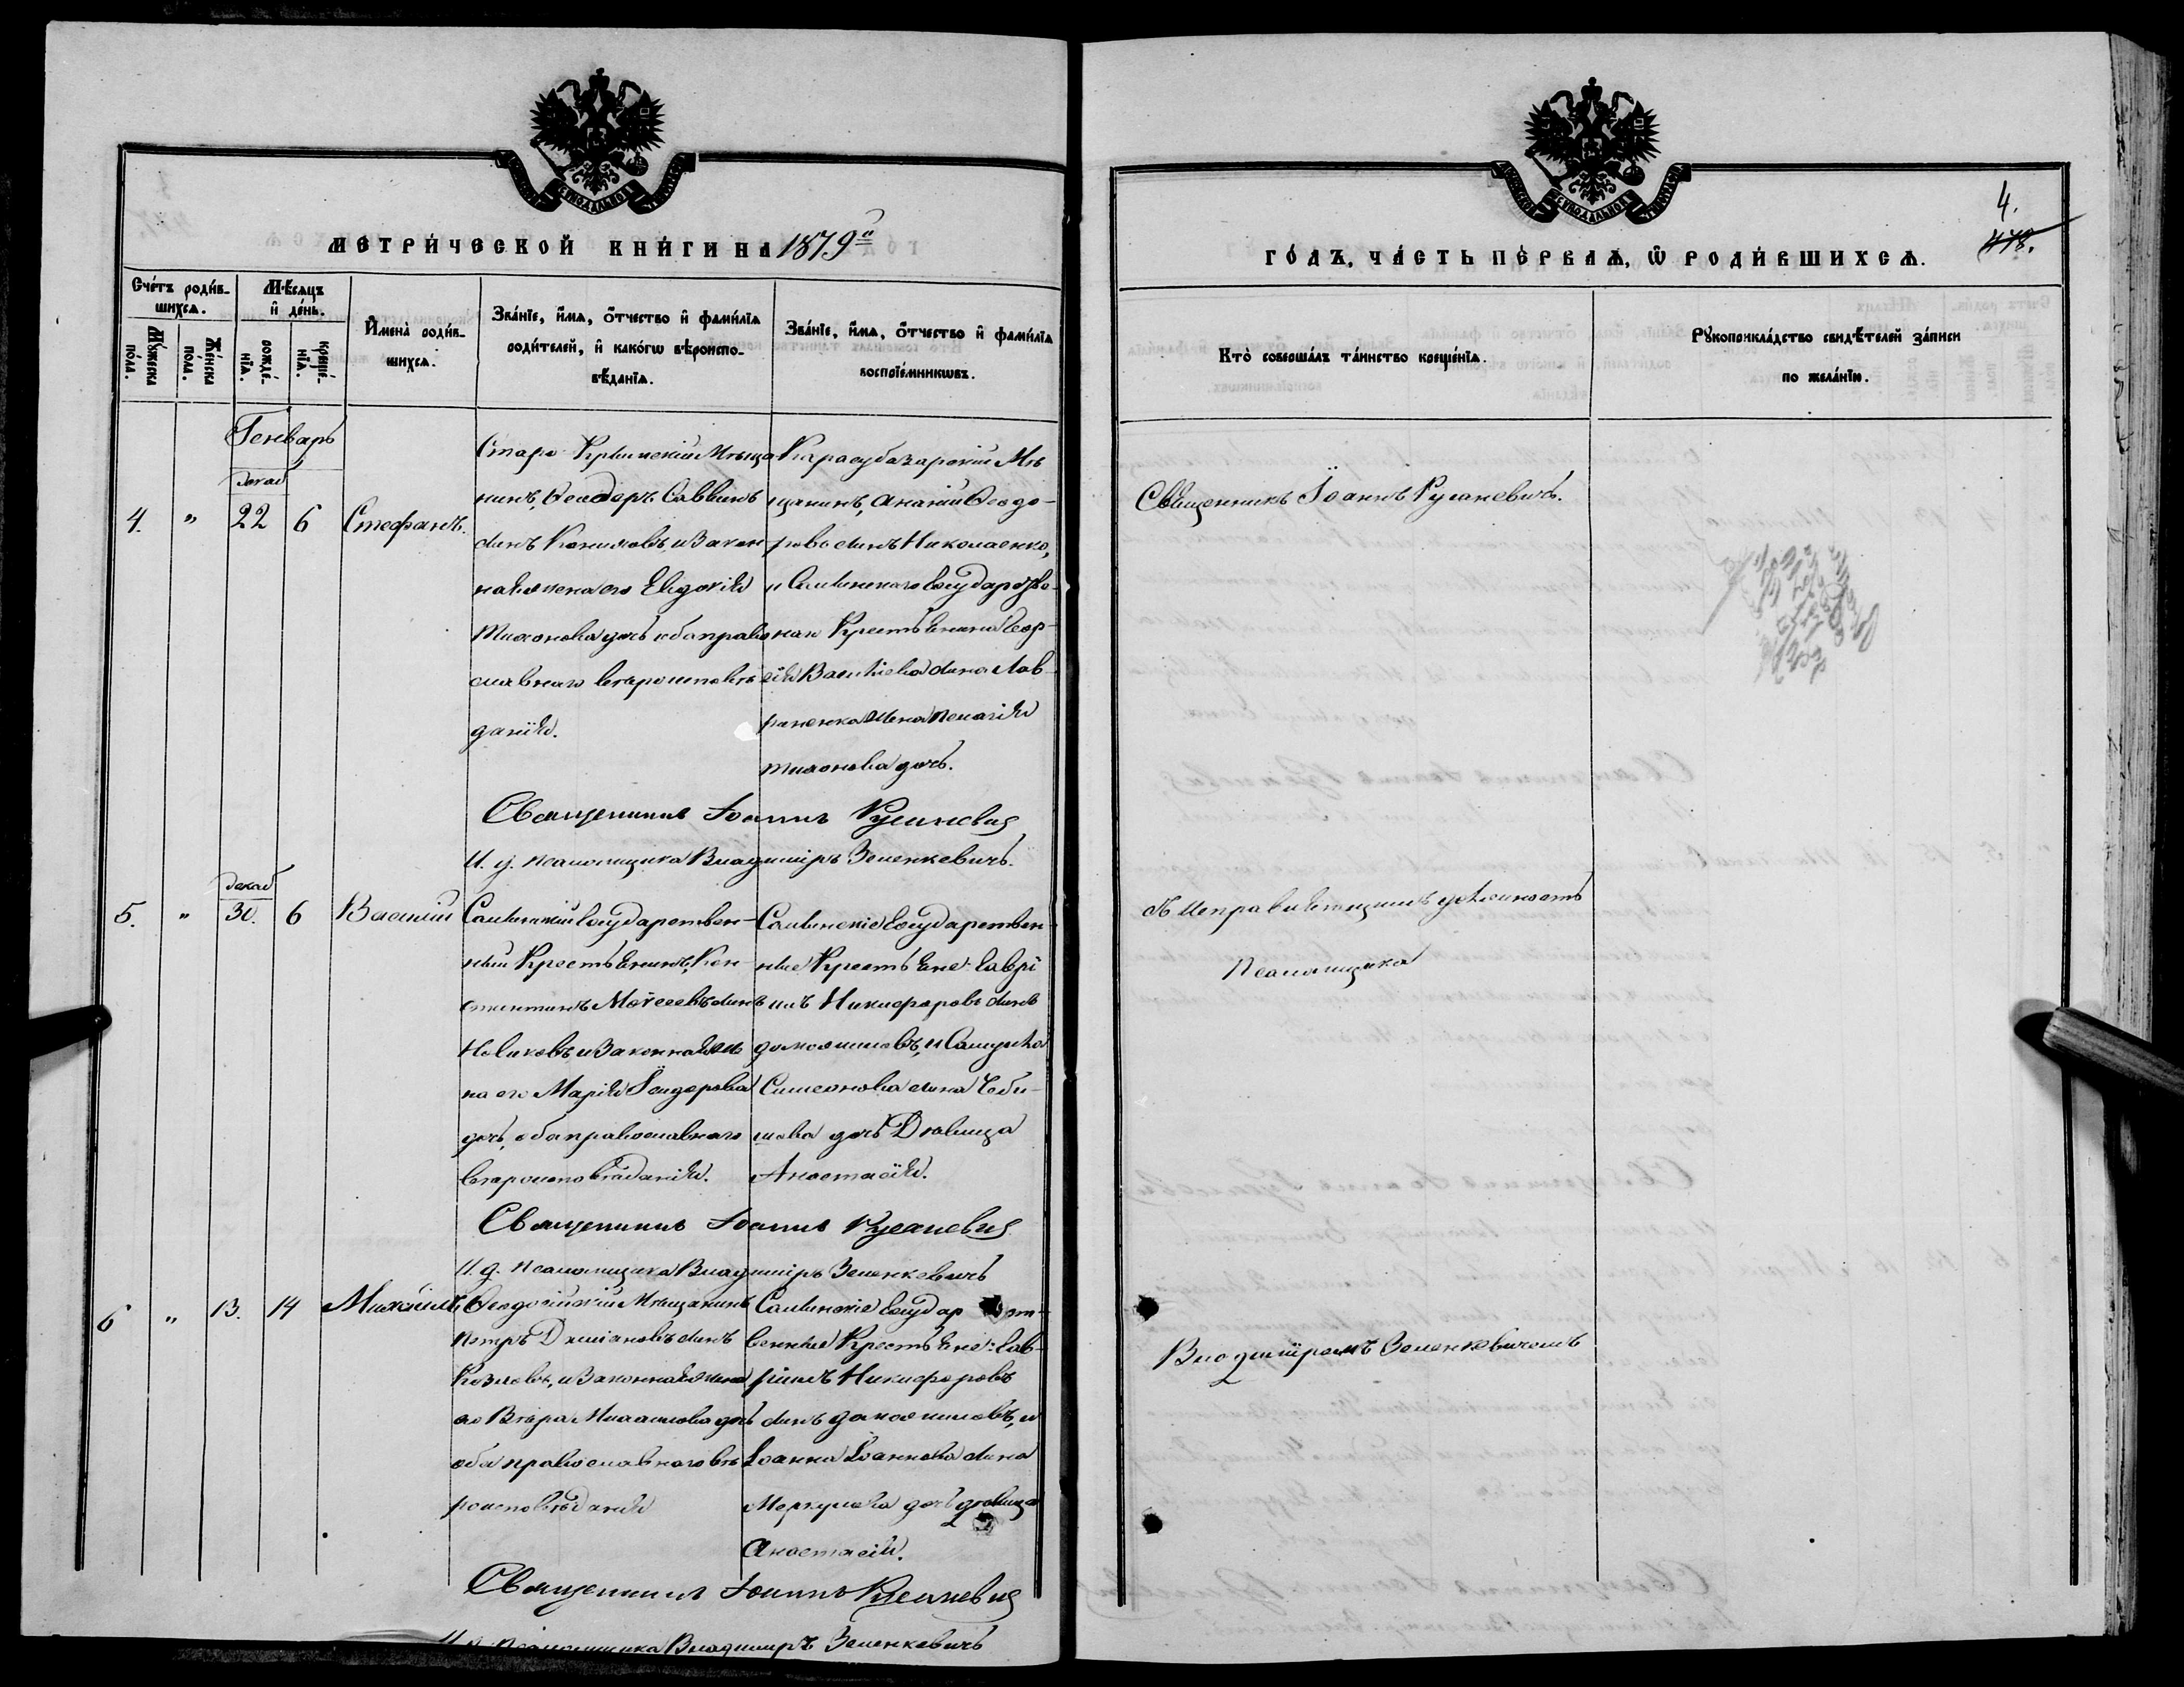 МЕТРИ́ЧЕСКОЙ КНИ́ГИ НА 1879й
Сче́тъ роди́в-
шихсѧ.
Мꙋ́жеска по́ла.
Же́нска по́ла.
Мѣ́сѧцъ
и҆ де́нь.
рожде́-
нїѧ.
креще́-
нїѧ.
И҆мена̀ роди́в-
шихсѧ.
Зва́нїе, и҆́мѧ, ѻ҆́тчество и҆ фами́лїѧ
роди́телей, и҆ како́гѡ вѣроиспо-
вѣ́данїѧ.
Зва́нїе, и҆́мѧ, ѻ҆́тчество и҆ фами́лїѧ
воспрїе́мникѡвъ.
Генварь
декаб
4. " 22 6 Стефанъ.
Старо-Крымскій Мѣща-
нинъ, Ѳеодоръ Саввинъ
сынъ и Закон-
ная жена его Евдокія
Тихонова дочь оба право
славнаго вѣроисповѣ-
данія.
Карасубазарскій Мѣ
щанинъ, Ананій Ѳеодо-
ровъ сынъ Николаенко,
и Салынскаго Государстве-
наго Крестьянина Геор-
гія Васильева сына Лав-
риненка жена Пелагія
Тихонова дочь.
Священникъ Іоаннъ Русаневичъ
И. д. псаломщика Владиміръ Зеленкевичъ.
декаб
5. " 30. 6 Василій
Салынскій Государствен-
ный Крестьянинъ, Кон-
стантинъ Моѵсеевъ сынъ
Новиковъ, и Законная же
на его Марія Ѳеодорова
дочь, оба православнаго
вѣроисповѣданія.
Салынскіе Государствен-
ные Крестьяне: Гаврі
илъ Никифоровъ сынъ
и Самуила
Симеонова сына Чеби-
шова дочь Дѣвица
Анастасія.
Священникъ Іоаннъ Русаневичъ
И. д. псаломщика Владиміръ Зеленкевичъ
6 " 13. 14 Михаилъ
Ѳеодосійскій Мѣщанинъ
Петръ Даміановъ сынъ
Козловъ, и Законная жена
его Вѣра Михаилова дочь
оба православнаго вѣ
роисповѣданія
Салынскіе Государст-
венные Крестьяне: Гав-
ріилъ Никифоровъ
сынъ и
Іоанна Іоаннова сына
Меркулова дочь дѣвица
Анастасія.
Священникъ Іоаннъ Русаневичъ
И. д. псаломщика Владиміръ Зеленкевичъ
4.
478.
ГО́ДЪ, ЧА́СТЬ ПЕ́РВАѦ, Ѡ҆ РОДИ́ВШИХСѦ.
Кто̀ соверша́лъ та́инство креще́нїѧ.
Рꙋкоприкла́дство свидѣ́телей за́писи
по жела́нїю.
Священникъ Іоаннъ Русаневичъ.
Съ Исправляющимъ должность
Псаломщика
Владиміромъ Зеленкевичемъ